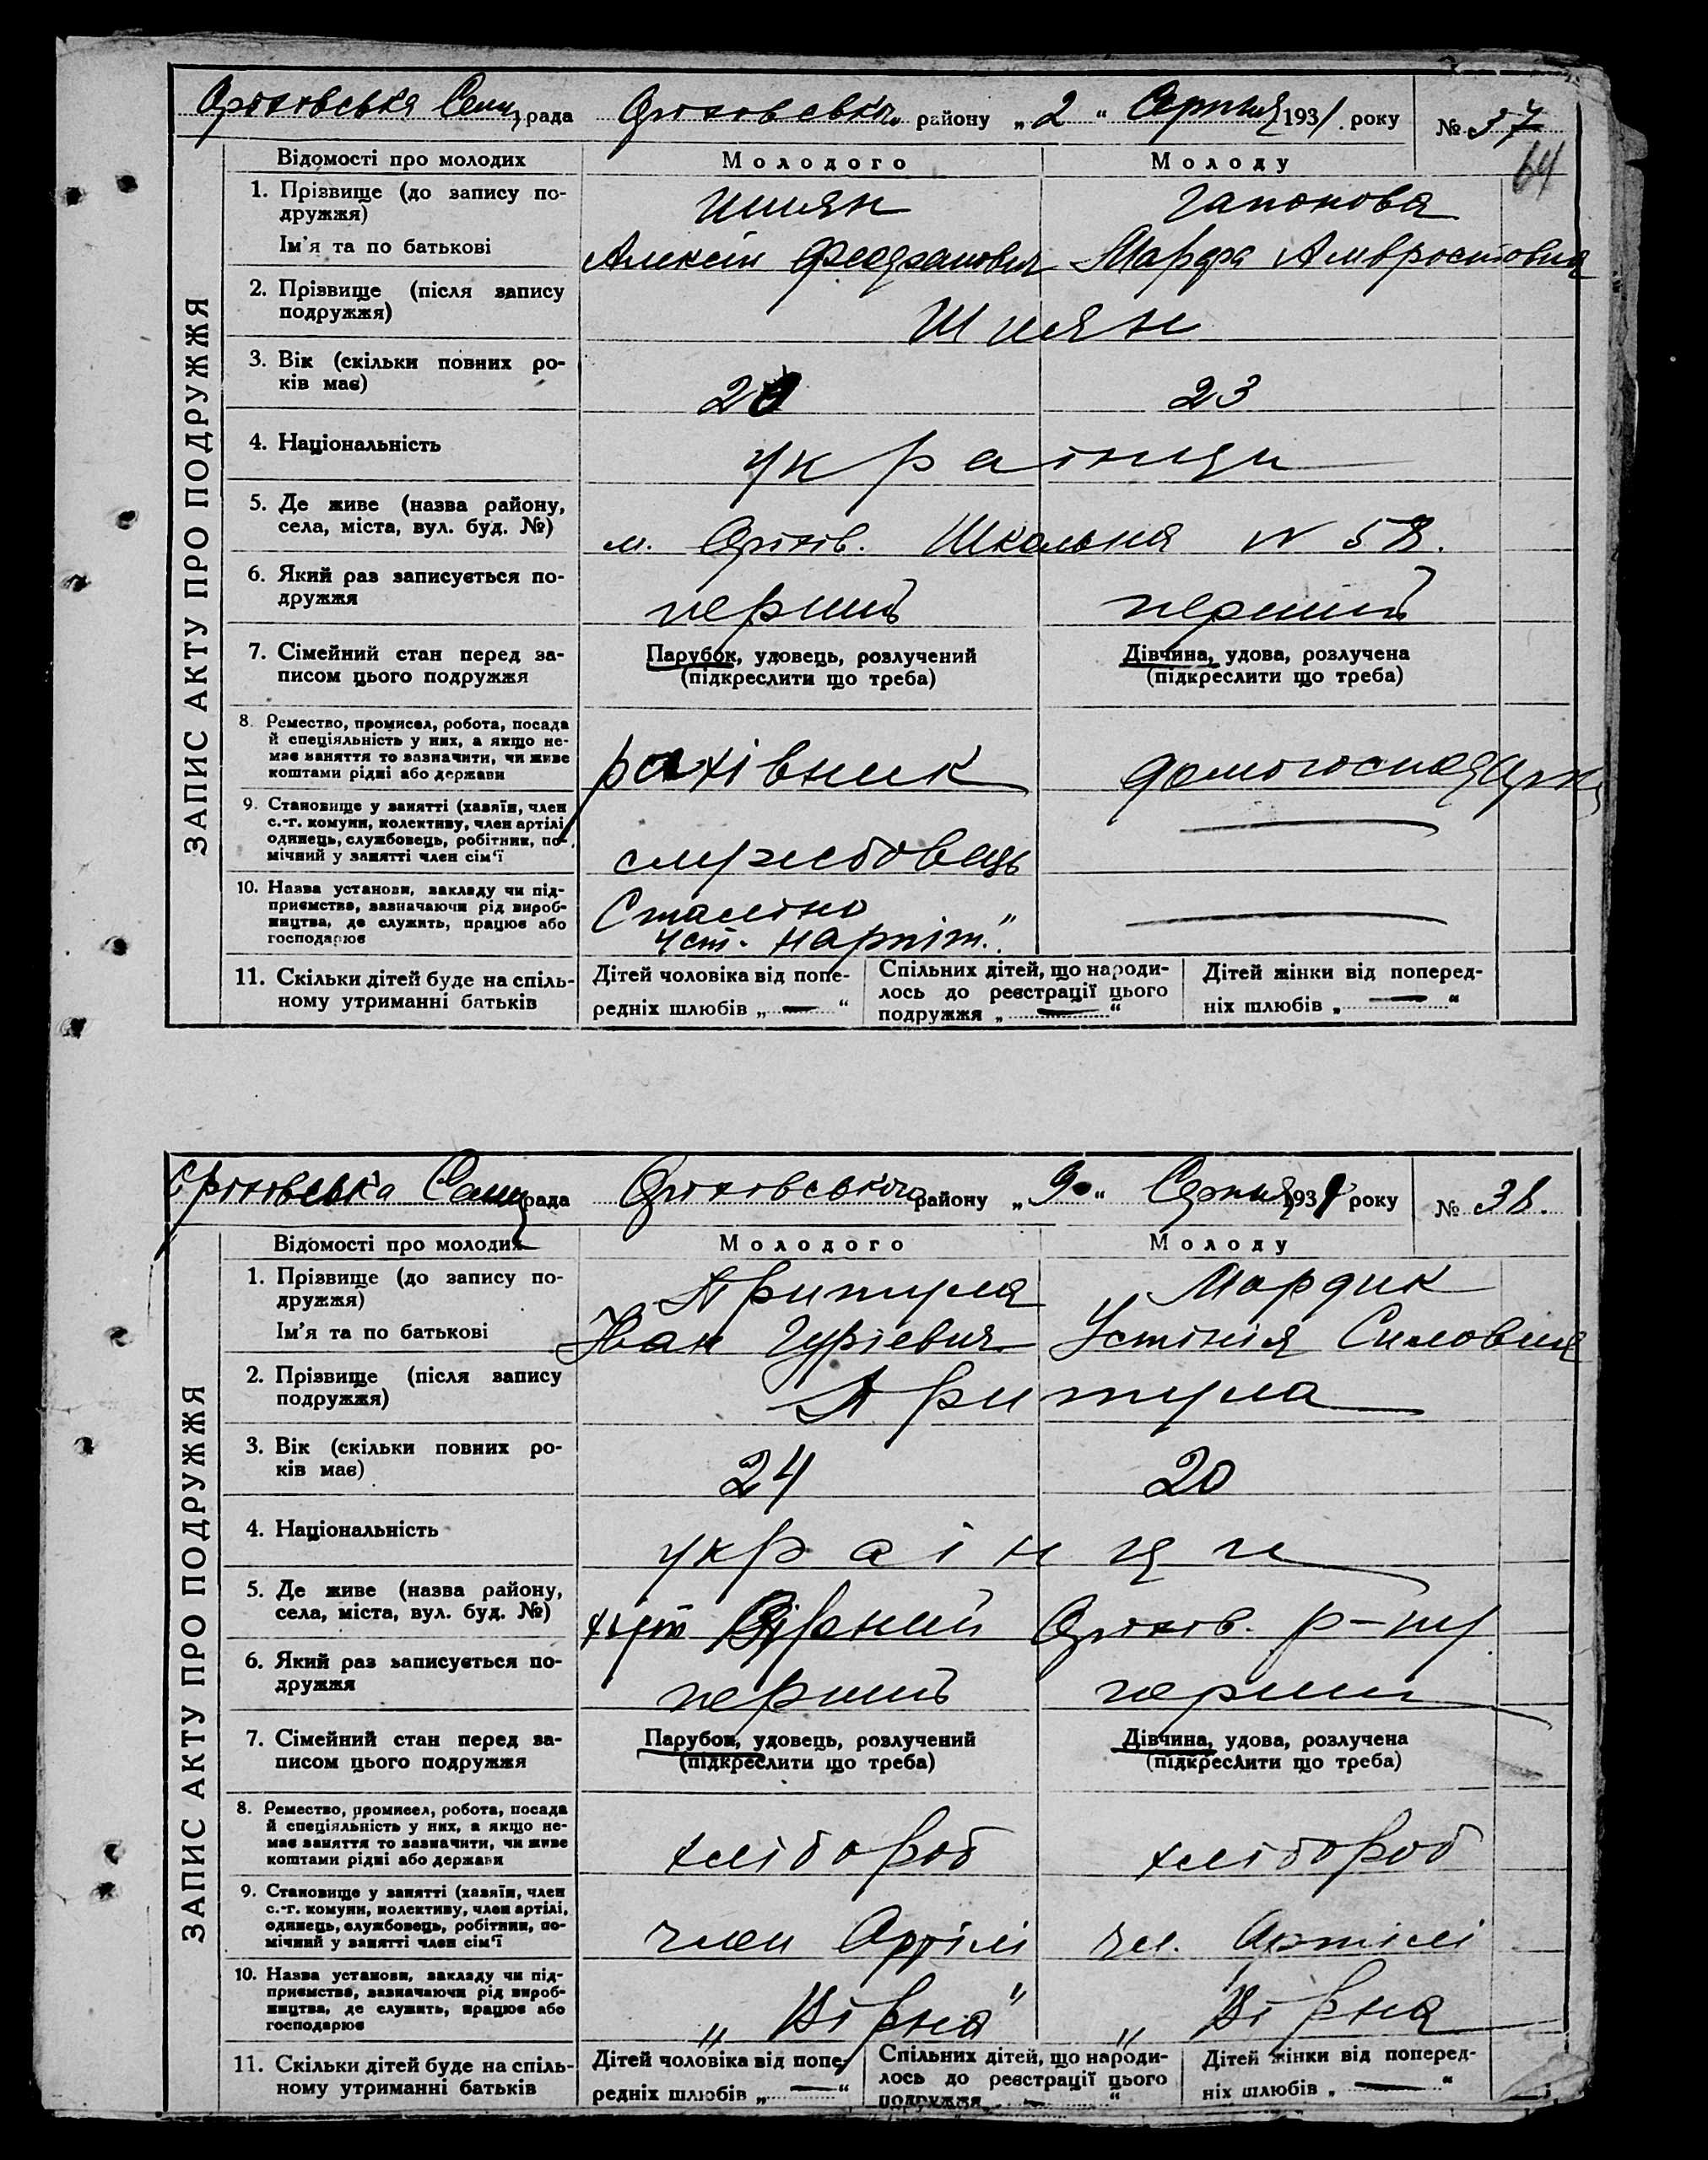 Оріховська Селищ рада Оріховськ. району „2“ Серпня 1931 року № 37
64
ЗАПИС АКТУ ПРО ПОДРУЖЖЯ
Відомості про молодих Молодого Молоду
1. Прізвище (до запису по-
дружжя) Шиян Гапонова
Ім'я та по батькові Алексій Марфа Амвросіовна
2. Прізвище (після запису
подружжя) Шиян
3. Вік (скільки повних ро-
ків має) 23
4. Національність українци
5. Де живе (назва району,
села, міста, вул. буд. №) м. Оріхів. Школьня № 58.
6. Який раз записується по-
дружжя перший перший
7. Сімейний стан перед за-
писом цього подружжя
Парубок, удовець, розлучений
(підкреслити що треба)
Дівчина, удова, розлучена
(підкреслити що треба)
8. Ремество, промисел, робота, посада
й спеціяльність у них, а якщо не-
має заняття то вазначити, чи живе
коштами рідні або держави
рахівник домогосподарка
9. Становище у занятті (хазяїн, член
с.-г. комуни, колективу, член артілі
одинець, службовець, робітник, по-
мічний у занятті член сім'ї
службовець
10. Назва установи, закладу чи під-
приємства, вазначаючи рід вироб-
ництва, де служить, працює або
господарює
Сталіно
уст. Нарпіт."
11. Скільки дітей буде на спіль-
ному утриманні батьків
Дітей чоловіка від попе-
редніх шлюбів „ — “
Спільних дітей, що народи-
лось до реєстрації цього
подружжя „ — “
Дітей жінки від поперед-
ніх шлюбів „ — “
Оріховська Селищ рада Оріховського району „9“ Серпня 1931 року № 38.
ЗАПИС АКТУ ПРО ПОДРУЖЖЯ
Відомості про молодих Молодого Молоду
1. Прізвище (до запису по-
дружжя) Притула Мардик
Ім'я та по батькові Іван Гурієвич Устінія Силовня
2. Прізвище (після запису
подружжя) Притула
3. Вік (скільки повних ро-
ків має) 24 20
4. Національність українци
5. Де живе (назва району,
села, міста, вул. буд. №) хут Вірний Оріхів. р-ну
6. Який раз записується по-
дружжя перший перший
7. Сімейний стан перед за-
писом цього подружжя
Парубок, удовець, розлучений
(підкреслити що треба)
Дівчина, удова, розлучена
(підкреслити що треба)
8. Ремество, промисел, робота, посада
й спеціяльність у них, а якщо не-
має заняття то зазначити, чи живе
коштами рідні або держави
хлібороб хлібороб
9. Становище у занятті (хазяїн, член
с.-г. комуни, колективу, член артілі,
одинець, службовець, робітник, по-
мічний у занятті член сім'ї
член Артілі чл. Артілі
10. Назва установи, закладу чи під-
приємства, вазначаючи рід вироб-
ництва, де служить, працює або
господарює
„Вірна" „Вірна
11. Скільки дітей буде на спіль-
ному утриманні батьків
Дітей чоловіка від попе-
редніх шлюбів „ — “
Спільних дітей, що народи-
лось до реєстрації цього
подружжя „ — “
Дітей жінки від поперед-
ніх шлюбів „ — “